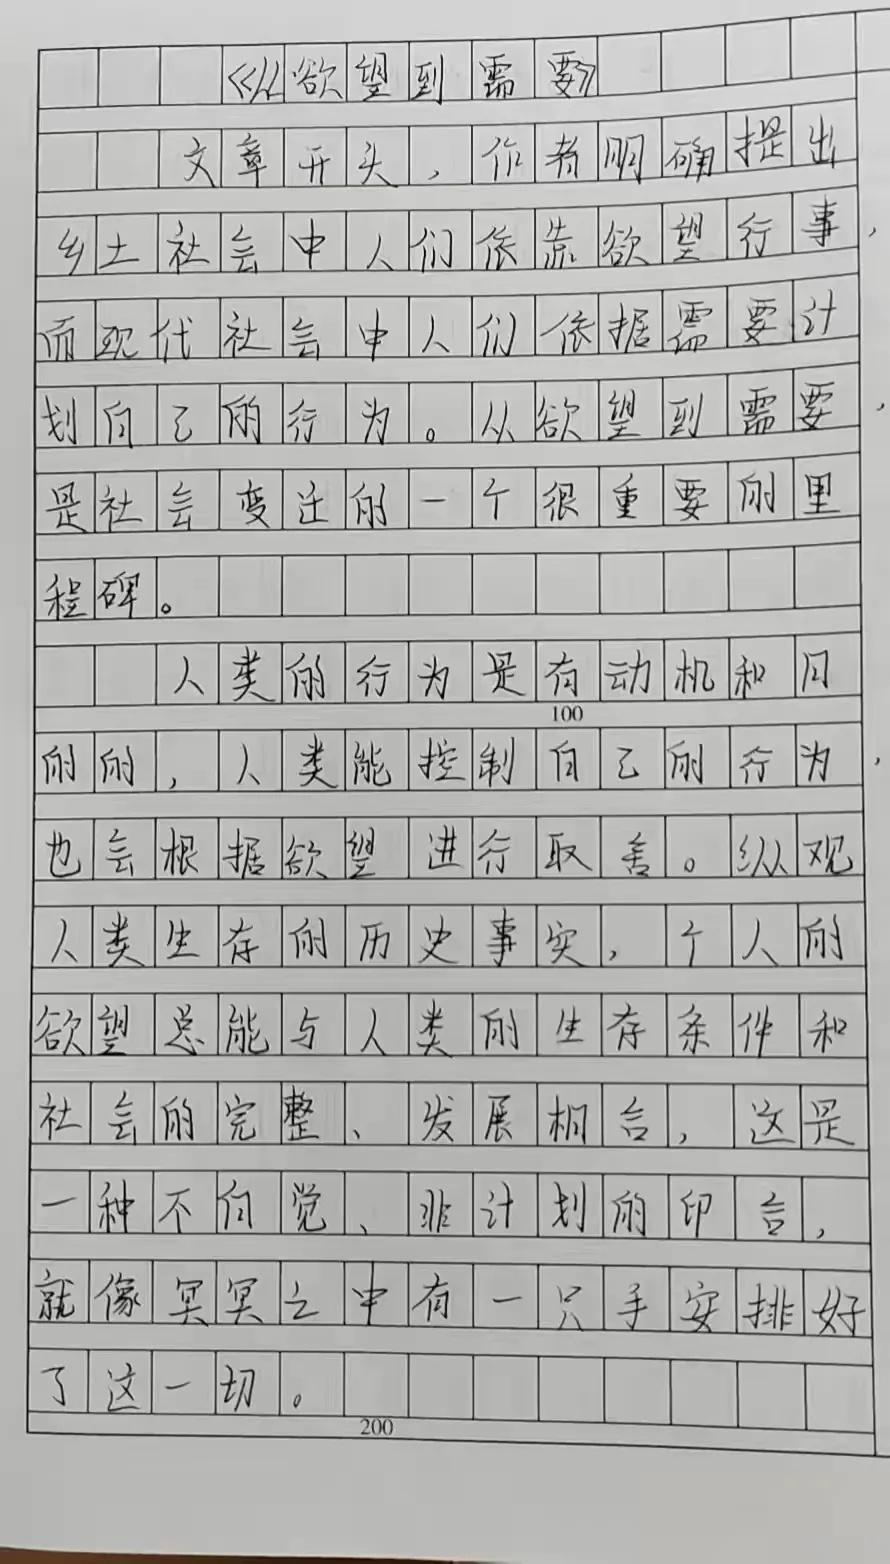 《从欲望到需要》
文章开头，作者明确提出
乡土社会中人们依靠欲望行事，
而现代社会中人们依据需要计
划自己的行为。从欲望到需要，
是社会变迁的一个很重要的里
程碑。
人类的行为是有动机和目
100
的的，人类能控制自己的行为，
也会根据欲望进行取舍。纵观
人类生存的历史事实，个人的
欲望总能与人类的生存条件和
社会的完整、发展相合，这是
一种不自觉、非计划的印合，
就像冥冥之中有一只手安排好
了这一切。
200